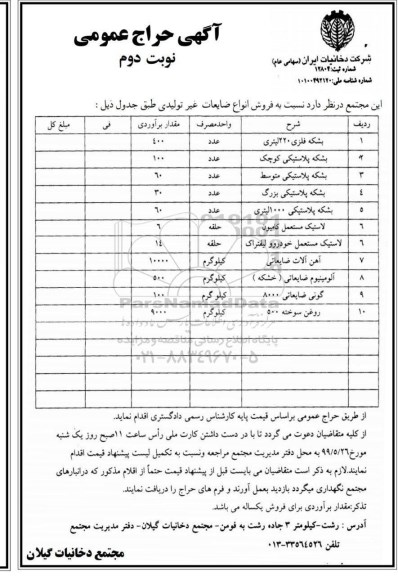 شرکت دخانیات ایران (سهامی عام)
شماره ثبت: ۱۲۸۰۴
شماره شناسه ملی: ۱۰۱۰۰۴۹۲۱۲۰
آگهی حراج عمومی
نوبت دوم
این مجتمع درنظر دارد نسبت به فروش انواع ضایعات غیر تولیدی طبق جدول ذیل :
ردیف شرح واحدمصرف مقدار برآوردی فی مبلغ کل
۱ بشکه فلزی ۲۲۰لیتری عدد ۴۰۰
۲ بشکه پلاستیکی کوچک عدد ۱۰۰
۳ بشکه پلاستیکی متوسط عدد ۶۰
۴ بشکه پلاستیکی بزرگ عدد ۳۰
۵ بشکه پلاستیکی ۱۰۰۰لیتری عدد ۶۰
۶ لاستیک مستعمل کامیون حلقه ۶
۶ لاستیک مستعمل خودررو لیفتراک حلقه ۱۴
۷ آهن آلات ضایعاتی کیلوگرم ۱۰۰۰۰
۸ آلومینیوم ضایعاتی ( خشکه ) کیلوگرم ۵۰۰
۹ گونی ضایعاتی ۸۰۰۰ کیلو گرم ۱۰۰
۱۰ روغن سوخته ۵۰۰ کیلوگرم ۹۰۰۰
ParsNamadData
پایگاه اطلاع رسانی مناقصه و مزایده
۰۲۱-۸۸۳۴۹۶۷۰-۵
از طریق حراج عمومی براساس قیمت پایه کارشناس رسمی دادگستری اقدام نماید.
از کلیه متقاضیان دعوت می گردد تا با در دست داشتن کارت ملی رأس ساعت ۱۱صبح روز یک شنبه
مورخ۹۹/۵/۲۶ به محل دفتر مدیریت مجتمع مراجعه ونسبت به تکمیل لیست پیشنهاد قیمت اقدام
نمایند.لازم به ذکر است متقاضیان می بایست قبل از پیشنهاد قیمت حتماً از اقلام مذکور که درانبارهای
مجتمع نگهداری میگردد بازدید بعمل آورند و فرم های حراج را دریافت نمایند.
تذکر:مقدار برآوردی برای فروش یکساله می باشد.
آدرس : رشت-کیلومتر ۳ جاده رشت به فومن- مجتمع دخانیات گیلان- دفتر مدیریت مجتمع
تلفن ۳۳۵۶۴۵۲۶-۰۱۳
مجتمع دخانیات گیلان